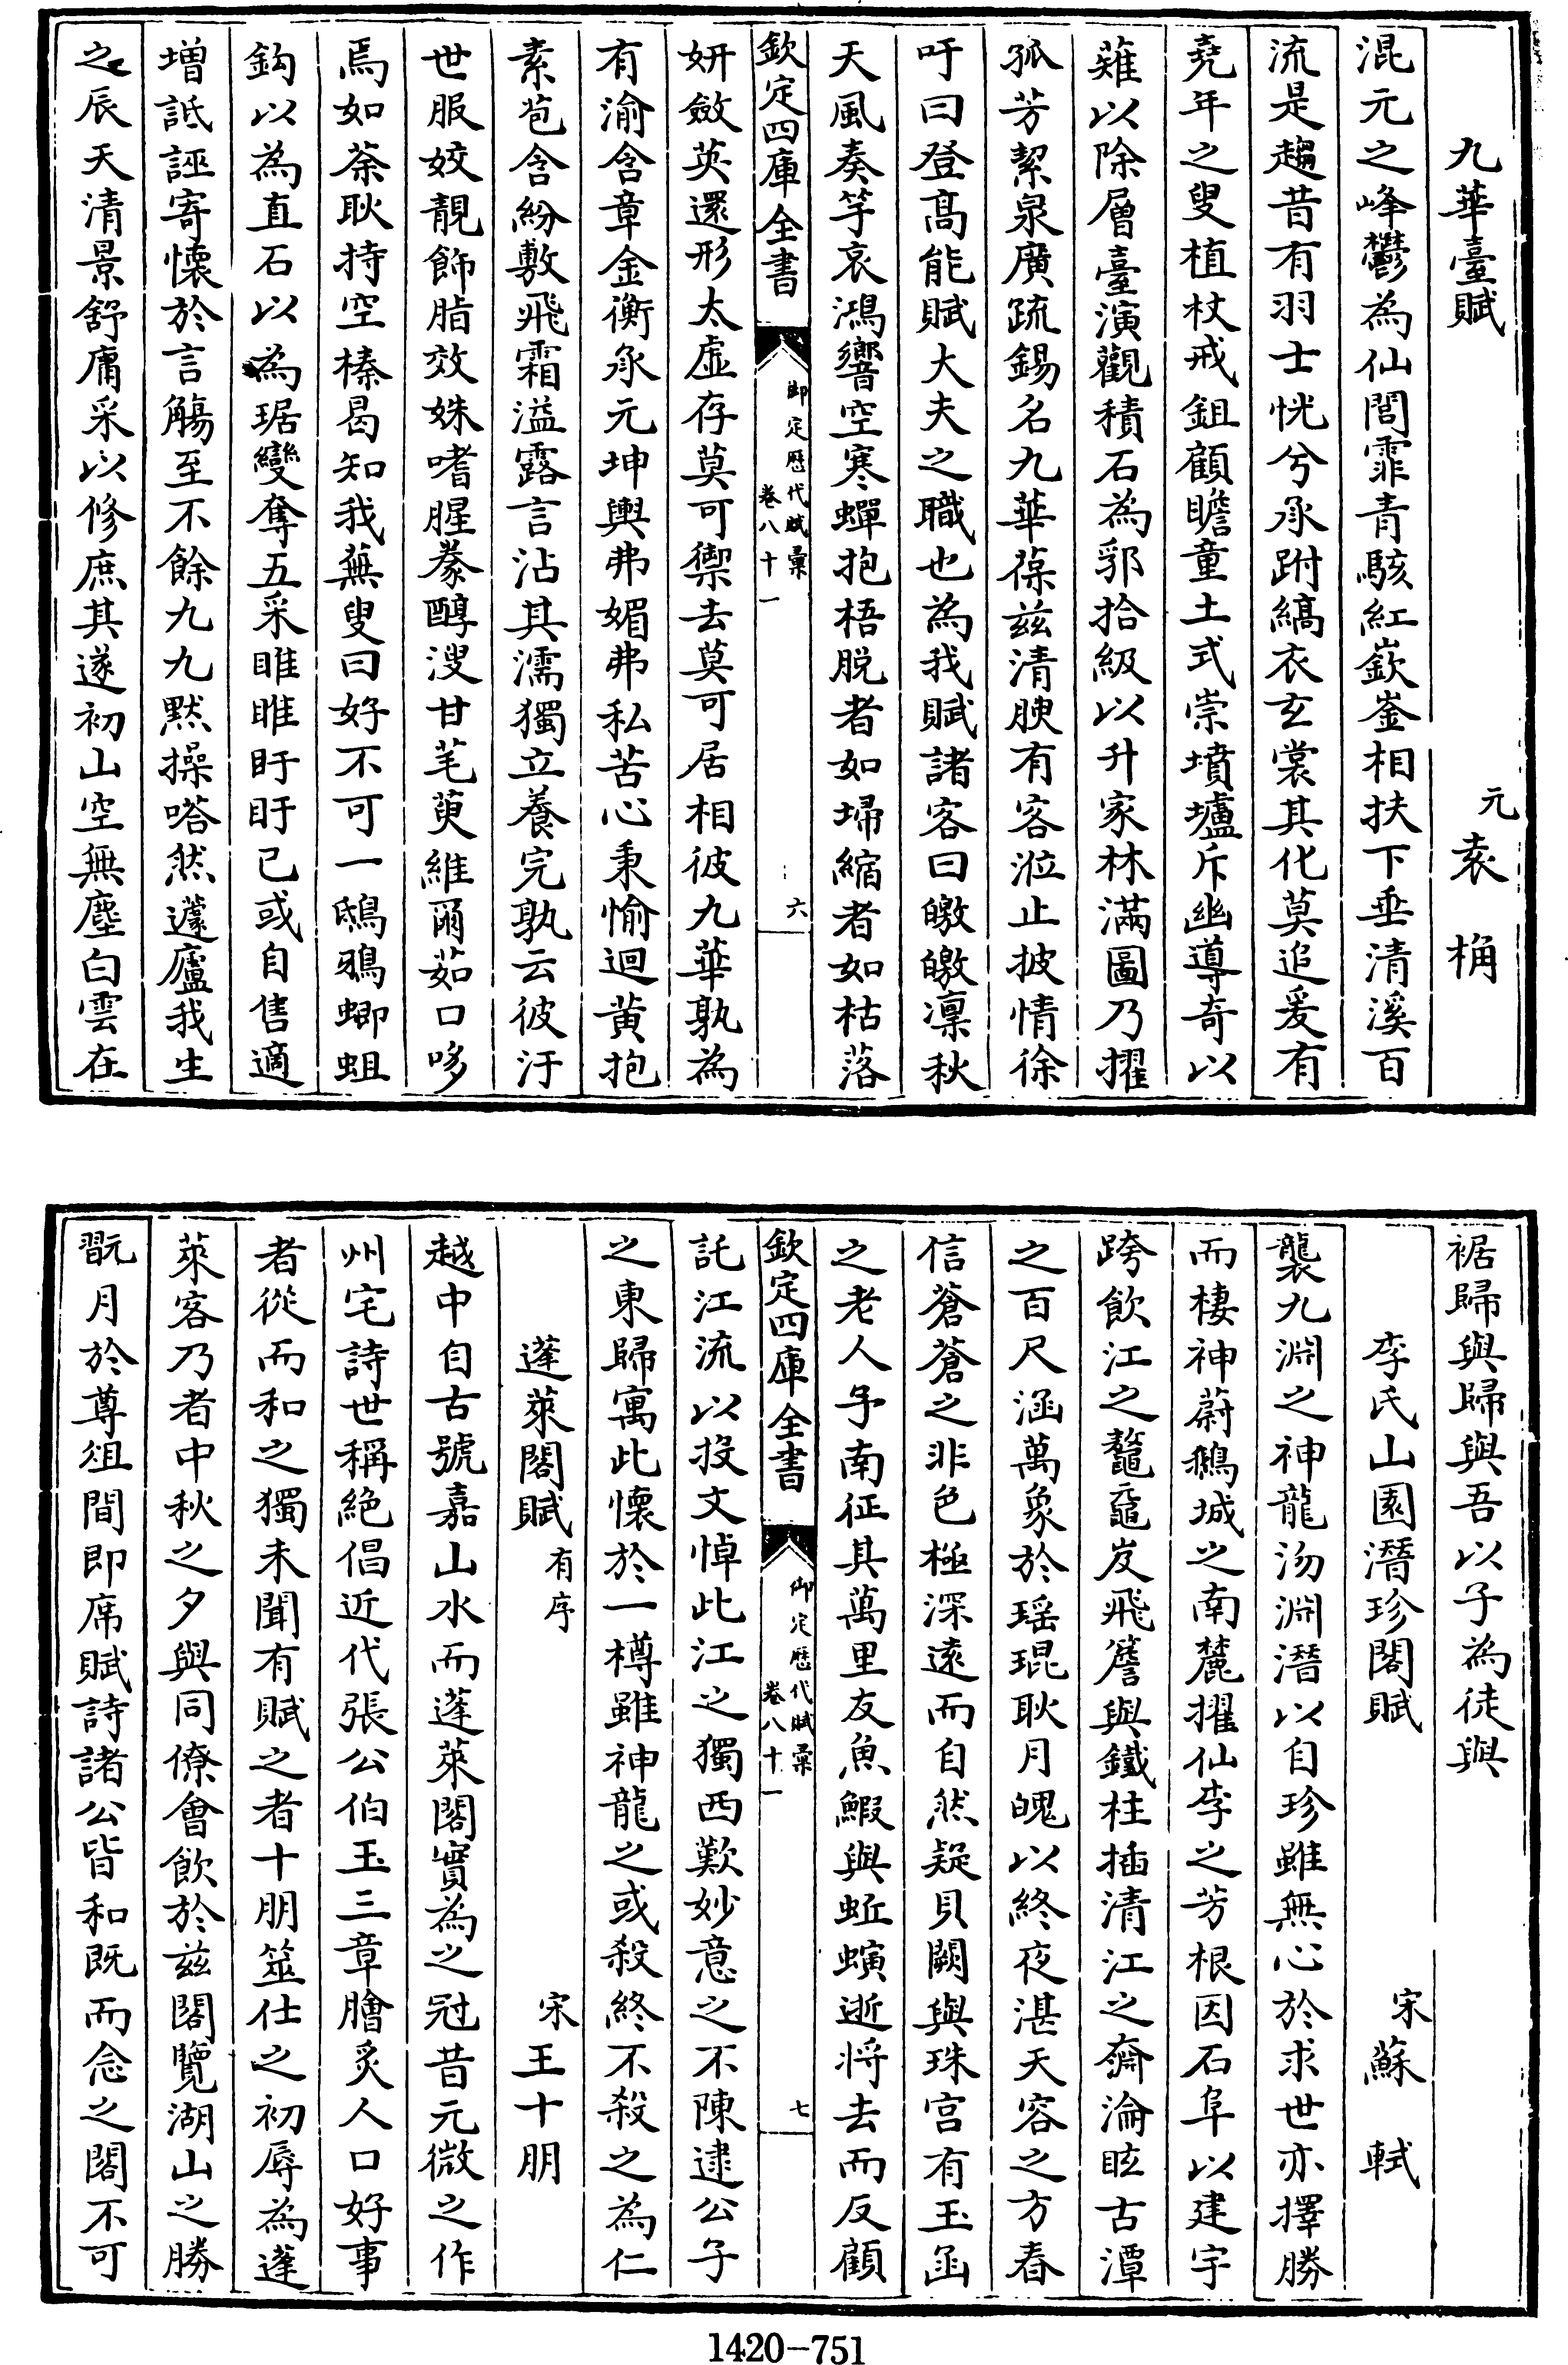 九華臺賦　元袁桷
混元之峰鬱為仙閭霏青駭紅嶔崟相扶下垂清溪百
流是趨昔有羽士恍兮承跗縞衣玄裳其化莫追爰有
堯年之叟植杖戒鉏顧瞻童土式崇墳壚斥幽導奇以
薙以除層臺演觀積石為郛拾級以升家林滿圖乃擢
孤芳絜泉廣疏錫名九華葆兹清腴有客涖止披情徐
吁曰登髙能賦大夫之職也為我賦諸客曰皦皦凛秋
天風奏竽哀鴻響空寒蟬抱梧脱者如埽縮者如枯落
欽定四庫全書　御定歴代賦彙　卷八十一　六
妍斂英還形太虚存莫可禦去莫可居相彼九華孰為
有渝含章金衡承元坤輿弗媚弗私苦心秉愉迴黄抱
素苞含紛敷飛霜溢露言沾其濡獨立養完孰云彼汙
世服姣靚飾脂效姝嗜腥豢醇溲甘芼萸維爾茹口哆
焉如荼耿持空榛曷知我蕪叟曰好不可一鴟鴉蝍蛆
鈎以為直石以為琚變奪五采睢睢盱盱已或自售適
增詆誣寄懷於言觴至不餘九九黙操嗒然蘧廬我生
之辰天清景舒庸采以修庶其遂初山空無塵白雲在
裾歸與歸與吾以子為徒與
李氏山園潛珍閣賦　宋蘇軾
襲九淵之神龍沕淵潛以自珍雖無心於求世亦擇勝
而棲神蔚鵝城之南麓擢仙李之芳根因石阜以建宇
跨飲江之鼇黿岌飛簷與鐵柱插清江之奫淪眩古潭
之百尺涵萬象於瑶琨耿月魄以終夜湛天容之方春
信蒼蒼之非色極深逺而自然疑貝闕與珠宫有玉函
之老人予南征其萬里友魚鰕與蚯螾逝將去而反顧
欽定四庫全書　御定歴代賦彙　卷八十一　七
託江流以投文悼此江之獨西歎妙意之不陳逮公子
之東歸寓此懷於一樽雖神龍之或殺終不殺之為仁
蓬萊閣賦有序　宋王十朋
越中自古號嘉山水而蓬萊閣實為之冠昔元微之作
州宅詩世稱絶倡近代張公伯玉三章膾炙人口好事
者從而和之獨未聞有賦之者十朋筮仕之初辱為蓬
萊客乃者中秋之夕與同僚會飲於兹閣覽湖山之勝
翫月於尊俎間即席賦詩諸公皆和既而念之閣不可
1420-751